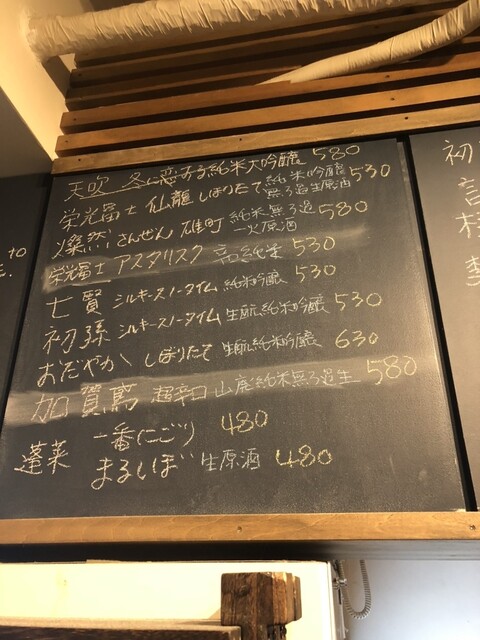 天吹 冬に恋する純米大吟醸 580
栄光冨士 仙龍 しぼりたて 純米吟醸 無ろ過生原酒 530
燦然 さんぜん 雄町 純米無ろ過 一火原酒 580
栄光冨士 アスタリスク 高純米 530
七賢 シルキースノータイム 純米吟醸 530
初孫 シルキースノータイム 生酛純米吟醸 530
おだやか しぼりたて 生酛純米吟醸 630
加賀鳶 超辛口 山廃純米無ろ過生 580
蓬莱 一番にごり 480
まるいぼ 生原酒 480
初
言
to